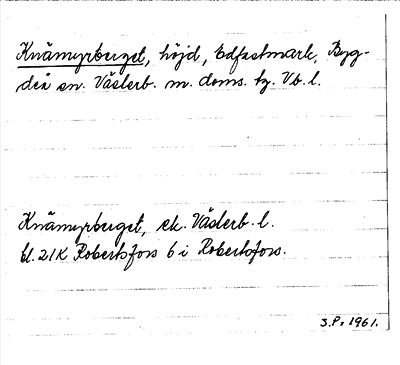 Knämyrberget, höjd, Edfastmark, Byg-
deå sn. Västerb. m. doms. tg. Vb. l.
Knämyrberget, ek. Västerb. l.
bl. 21K Robertsfors 6 i Robertsfors.
S.P. 1961.